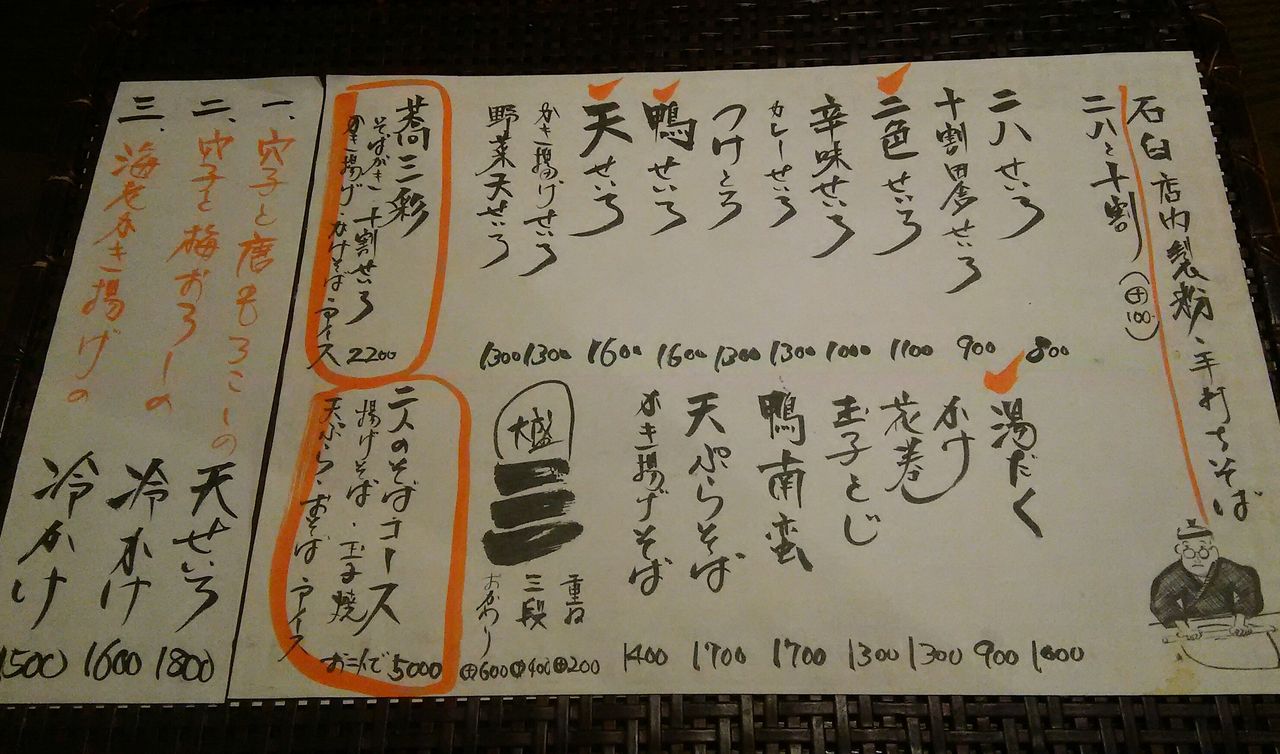 石臼 店内製粉、手打ちそば
二八と十割 (⊕100-)
二八せいろ 800
十割田舎せいろ 900
二色せいろ 1100
辛味せいろ 1000
カレーせいろ 1300
つけとろ 1300
鴨せいろ 1600
天せいろ 1600
かき揚げせいろ 1300
野菜天せいろ 1300
蕎三彩
そばがき・十割せいろ 2200
かき揚げ・かけそば・アイス
湯だく 1000
かけ 900
花巻 1300
玉子とじ 1300
鴨南蛮 1700
天ぷらそば 1700
かき揚げそば 1400
大盛
重ね ⊕200
三段 ⊕400
おかわり ⊕600
二人のそばコース 5000
揚げそば・玉子焼 お二人で
天ぷら・おそば・アイス
一、穴子と唐もろこしの 天せいろ 1800
二、穴子と梅おろしの 冷かけ 1600
三、海老かき揚げの 冷かけ 1500